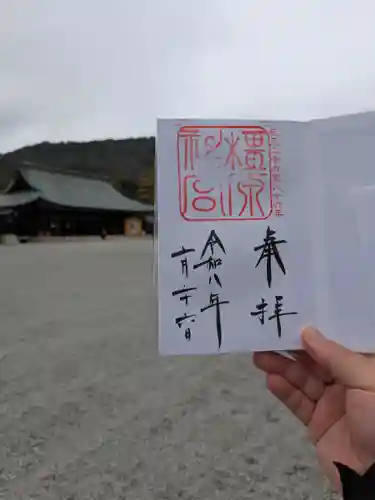 奉拝
橿原神宮
令和八年
二月二十六日